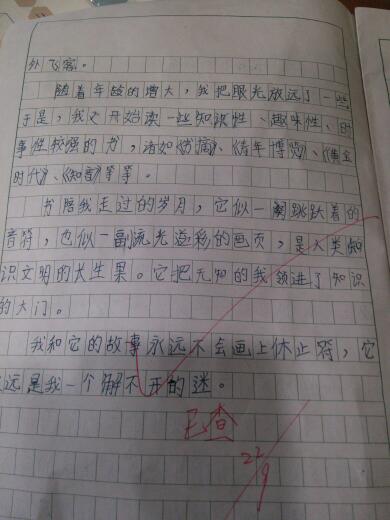 外飞窜。
随着年龄的增大，我把眼光放远了一些
于是，我又开始读一些知识性、趣味性、时
事性较强的书，诸如《书摘》、《青年博览》、《黄金
时代》、《知音》等等。
书陪我走过的岁月，它似一翩跳跃着的
音符，也似一副流光溢彩的画页，是人类知
识文明的长生果。它把无知的我领进了知识
的大门。
我和它的故事永远不会画上休止符，它
永远是我一个解不开的迷。
已查
22/9